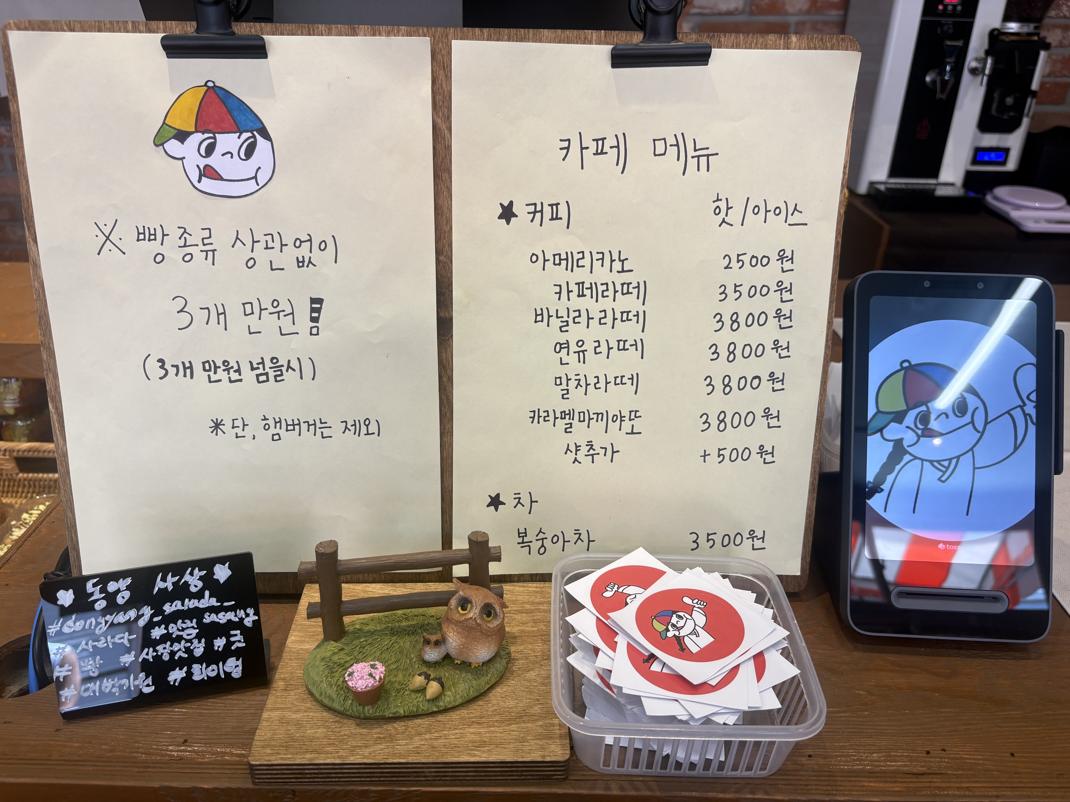 ※ 빵종류 상관없이
3개 만원
(3개 만원 넘을시)
※단, 햄버거는 제외
카페 메뉴
★ 커피 핫/아이스
아메리카노 2500원
카페라떼 3500원
바닐라라떼 3800원
연유라떼 3800원
말차라떼 3800원
카라멜마끼야또 3800원
샷추가 +500원
★ 차
복숭아차 3500원
동양 사상
#dongyang_salada_
sasang
#사라다 #맛집
#빵 #사당맛집 #굿
#대박기원 #화이팅